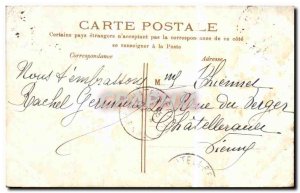 CARTE POSTALE
Certains pays étrangers n'acceptent pas la correspondance de ce côté
se renseigner à la Poste
Correspondance
Adresse
Nous t'embrassons
Rachel Germaine
Mme
Rue du Verger
Châtellerault
Vienne